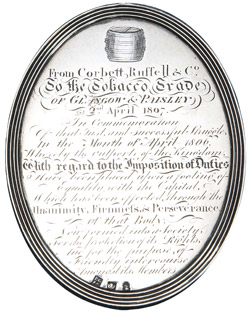 From Corbett, Russell & Co.
To the Tobacco Trade
OF GLASGOW & PAISLEY
2d April 1807.
In Commemoration
Of that just and successful Struggle
In the Month of April 1806,
Whereby the traders of the Kingdom
With regard to the Imposition of Duties
Were placed upon a footing of
Equality with the Capital, &
Which has been effected through the
Unanimity, Firmness, & Perseverance
of that Body;
Now formed into a Society
for the protection of its Rights,
and for the purpose of
Friendly intercourse
Amongst its Members